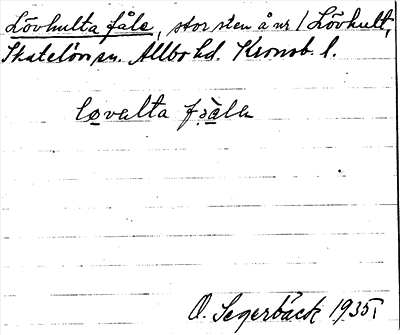 Lövhulta fåle, stor sten å nr 1 Lövhult,
Skatelöv sn. Allbo hd. Kronob. l.
løvalta fạ̀le
O. Segerbäck 1935